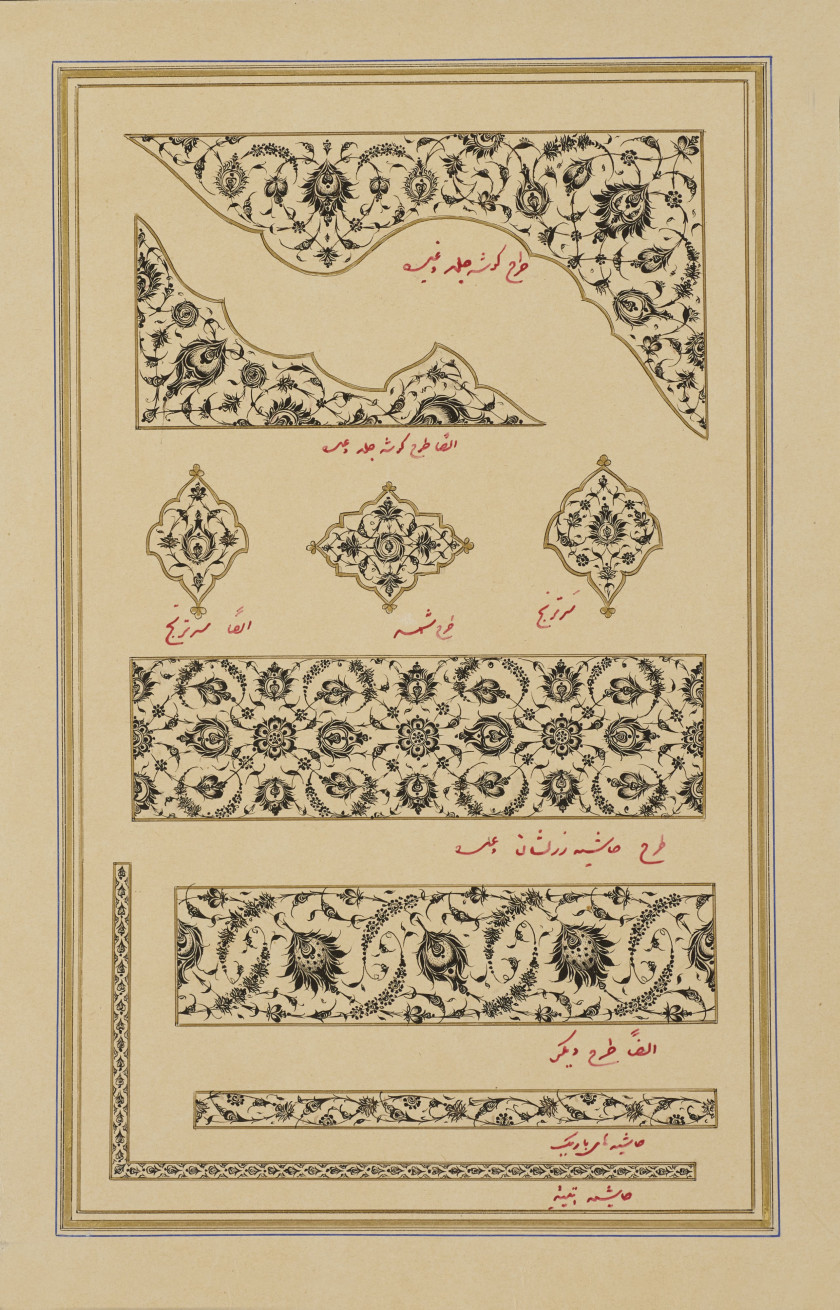 طرح گوشه جلد وغیره
ایضاً طرح گوشه جلد وغیره
سرترنج
طرح شمسه
ایضاً سرترنج
طرح حاشیه زرفشان وغیره
ایضاً طرح دیگر
حاشیه های باریک
حاشیه